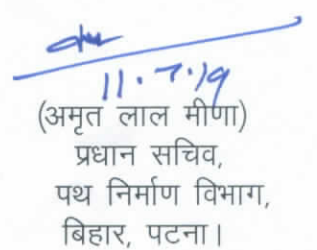 11.7.19
(अमृत लाल मीणा)
प्रधान सचिव,
पथ निर्माण विभाग,
बिहार, पटना।